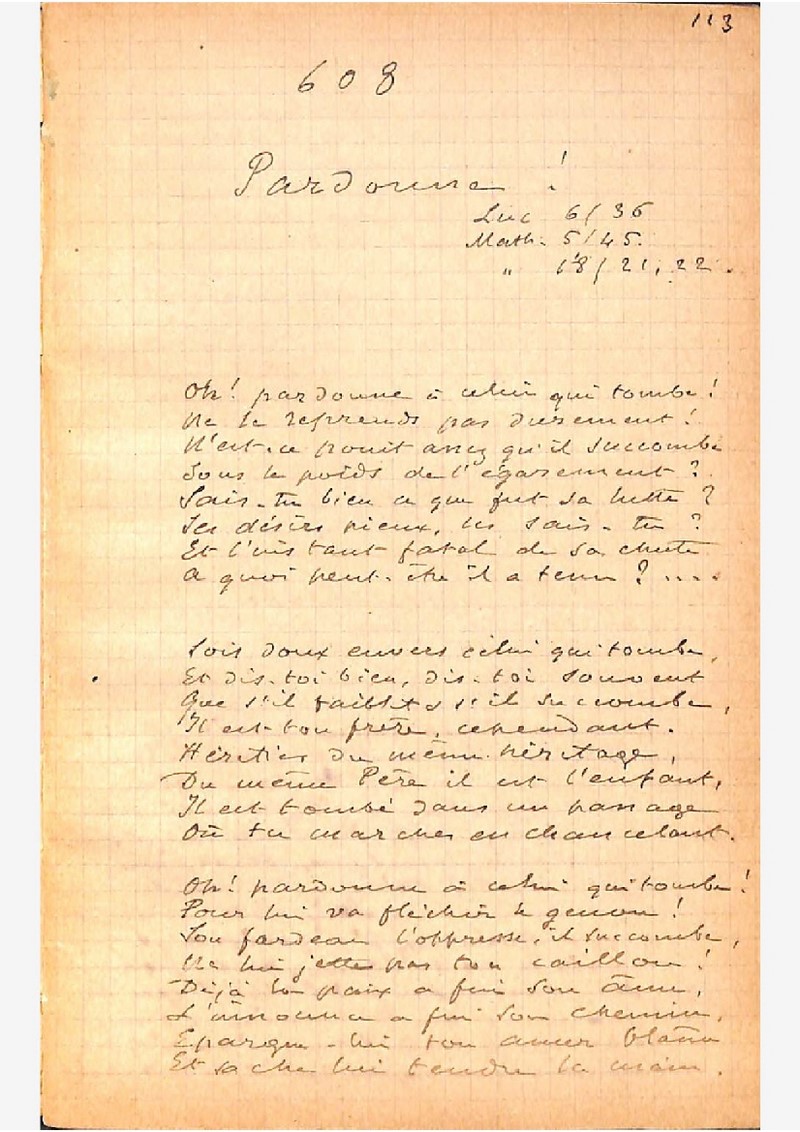 113
608
Pardonne !
Luc 6/36
Math. 5/45.
„ 18/21, 22.
Oh! pardonne à celui qui tombe!
Ne le reprends pas durement!
N'est-ce point assez qu'il succombe
Sous le poids de l'égarement?
Sais-tu bien ce que fut sa lutte?
Ses désirs pieux, les sais-tu?
Et l'instant fatal de sa chute
A quoi peut-être il a tenu?....
Sois doux envers celui qui tombe,
Et dis-toi bien, dis-toi souvent
Que s'il faiblit, s'il succombe,
Il est ton frère, cependant.
Héritier du même héritage,
Du même Père il est l'enfant,
Il est tombé dans un passage
Où tu marches en chancelant.
Oh! pardonne à celui qui tombe!
Pour lui va fléchir le genou!
Son fardeau l'oppresse, il succombe,
Ne lui jette pas ton caillou!
Déjà la paix a fui son âme,
L'innocence a fui son chemin,
Epargne-lui ton amer blâme
Et sache lui tendre la main.